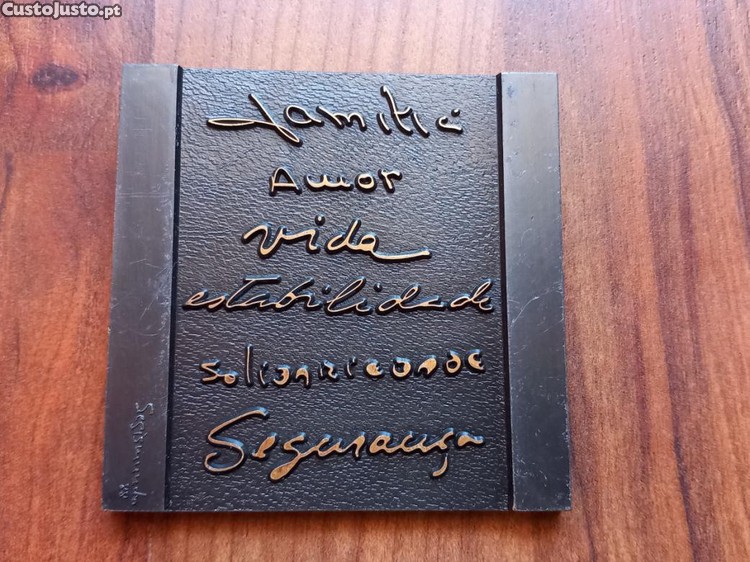 CustoJusto.pt
família
Amor
vida
estabilidade
solidariedade
Segurança